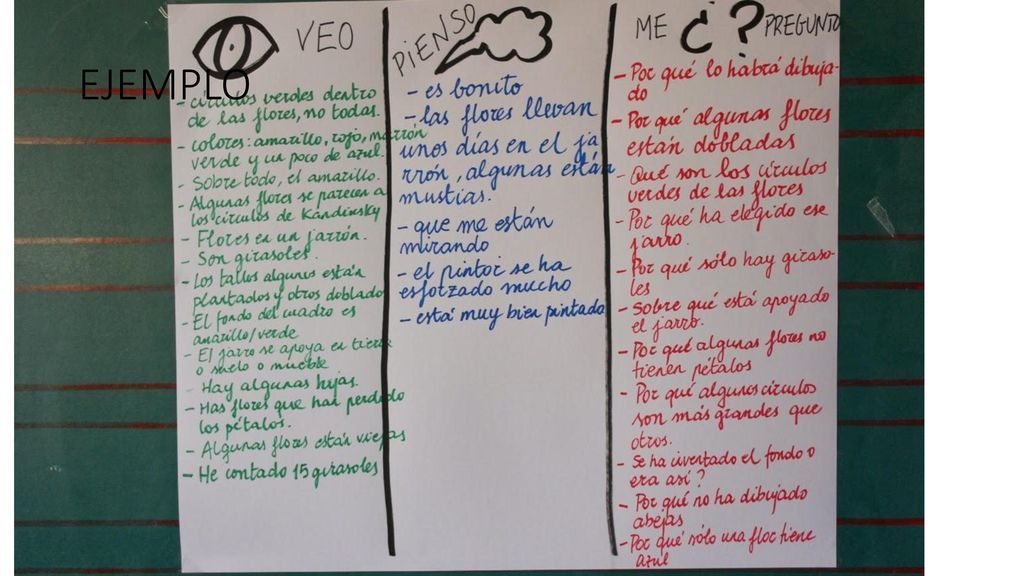 EJEMPLO
VEO
- círculos verdes dentro
de las flores, no todas.
- colores: amarillo, rojo, marrón
verde y un poco de azul.
- Sobre todo, el amarillo.
- Algunas flores se parecen a
los círculos de Kandinsky
- Flores en un jarrón.
- Son girasoles.
- Los tallos algunos están
plantados y otros doblado
- El fondo del cuadro es
amarillo/verde
- El jarro se apoya en tierra
o suelo o mueble
- Hay algunas hijas.
- Has flores que han perdido
los pétalos.
- Algunas flores están viejas
- He contado 15 girasoles
PIENSO
- es bonito
- las flores llevan
unos días en el ja
rrón, algunas están
mustias.
- que me están
mirando
- el pintor se ha
esforzado mucho
- está muy bien pintado
ME ¿? PREGUNTO
- Por qué lo habrá dibuja-
do
- Por qué algunas flores
están dobladas
- Qué son los círculos
verdes de las flores
- Por qué ha elegido ese
jarro.
- Por qué sólo hay giraso-
les
- Sobre qué está apoyado
el jarro.
- Por qué algunas flores no
tienen pétalos
- Por qué algunos círculos
son más grandes que
otros.
- Se ha inventado el fondo o
era así?
- Por qué no ha dibujado
abejas
- Por qué sólo una flor tiene
azul